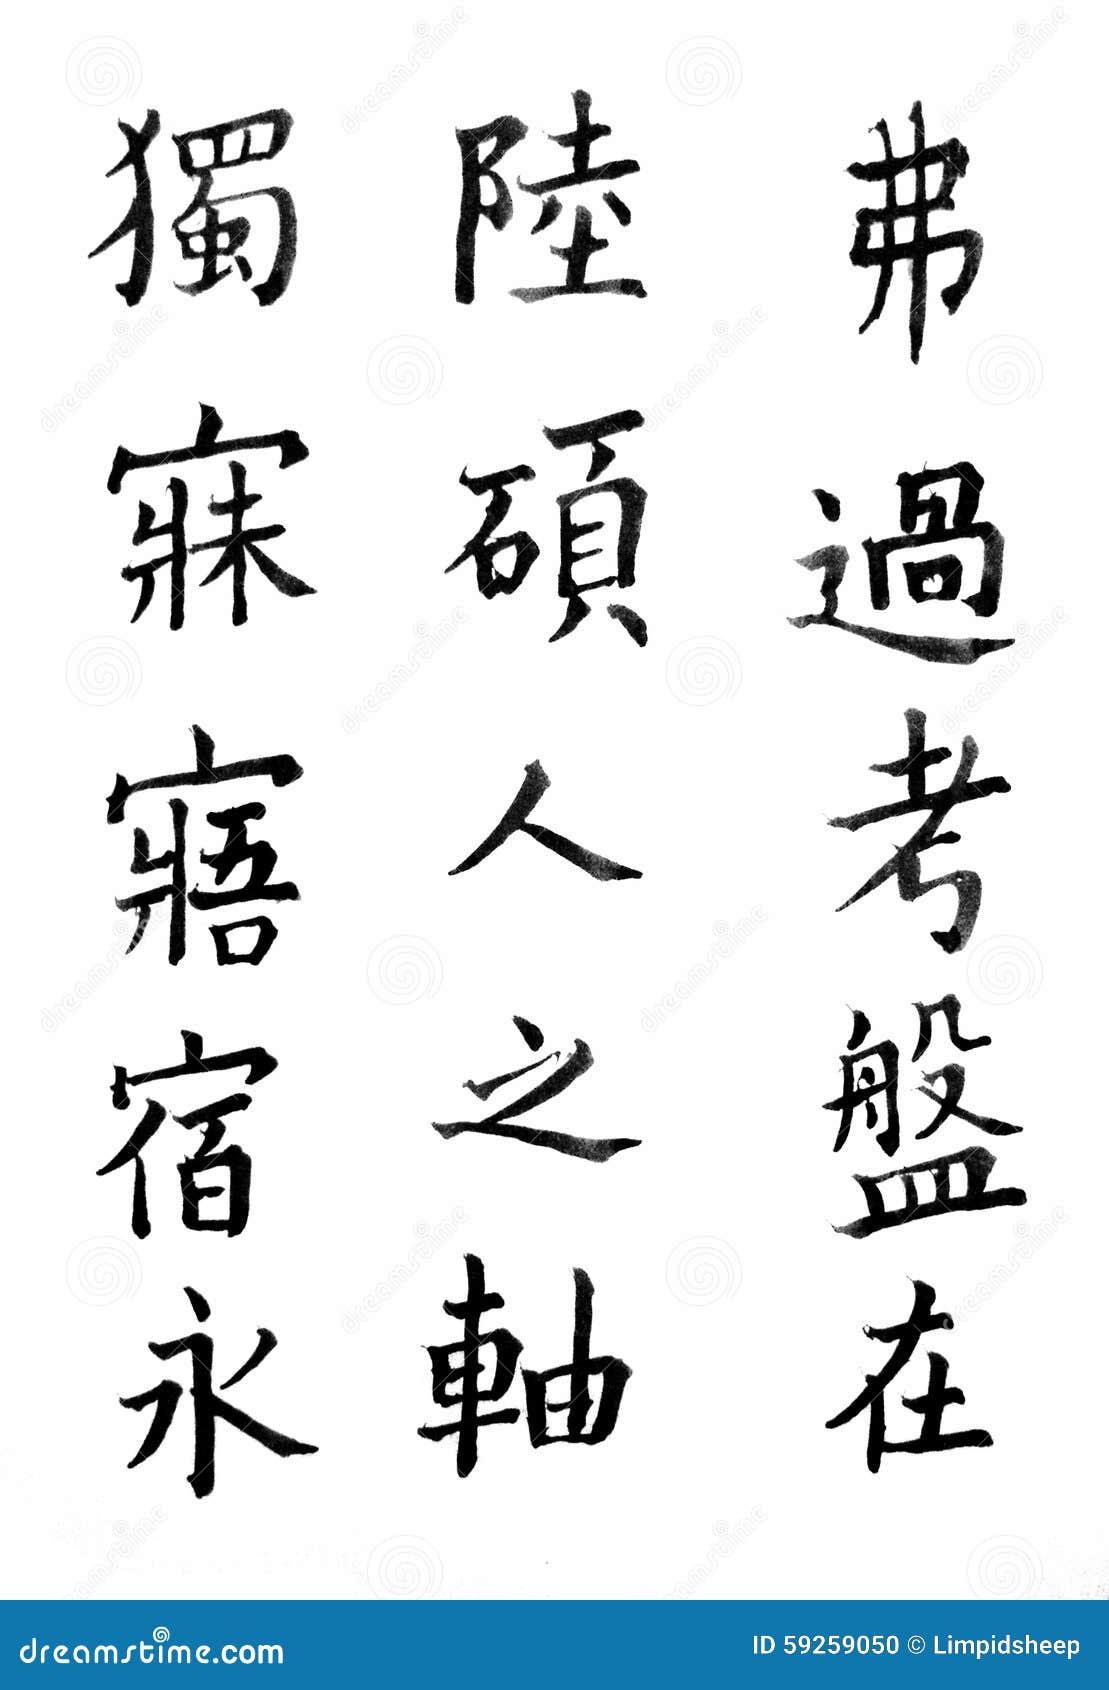 弗過考盤在
陸碩人之軸
獨寐寤宿永
dreamstime.com
ID 59259050 © Limpidsheep